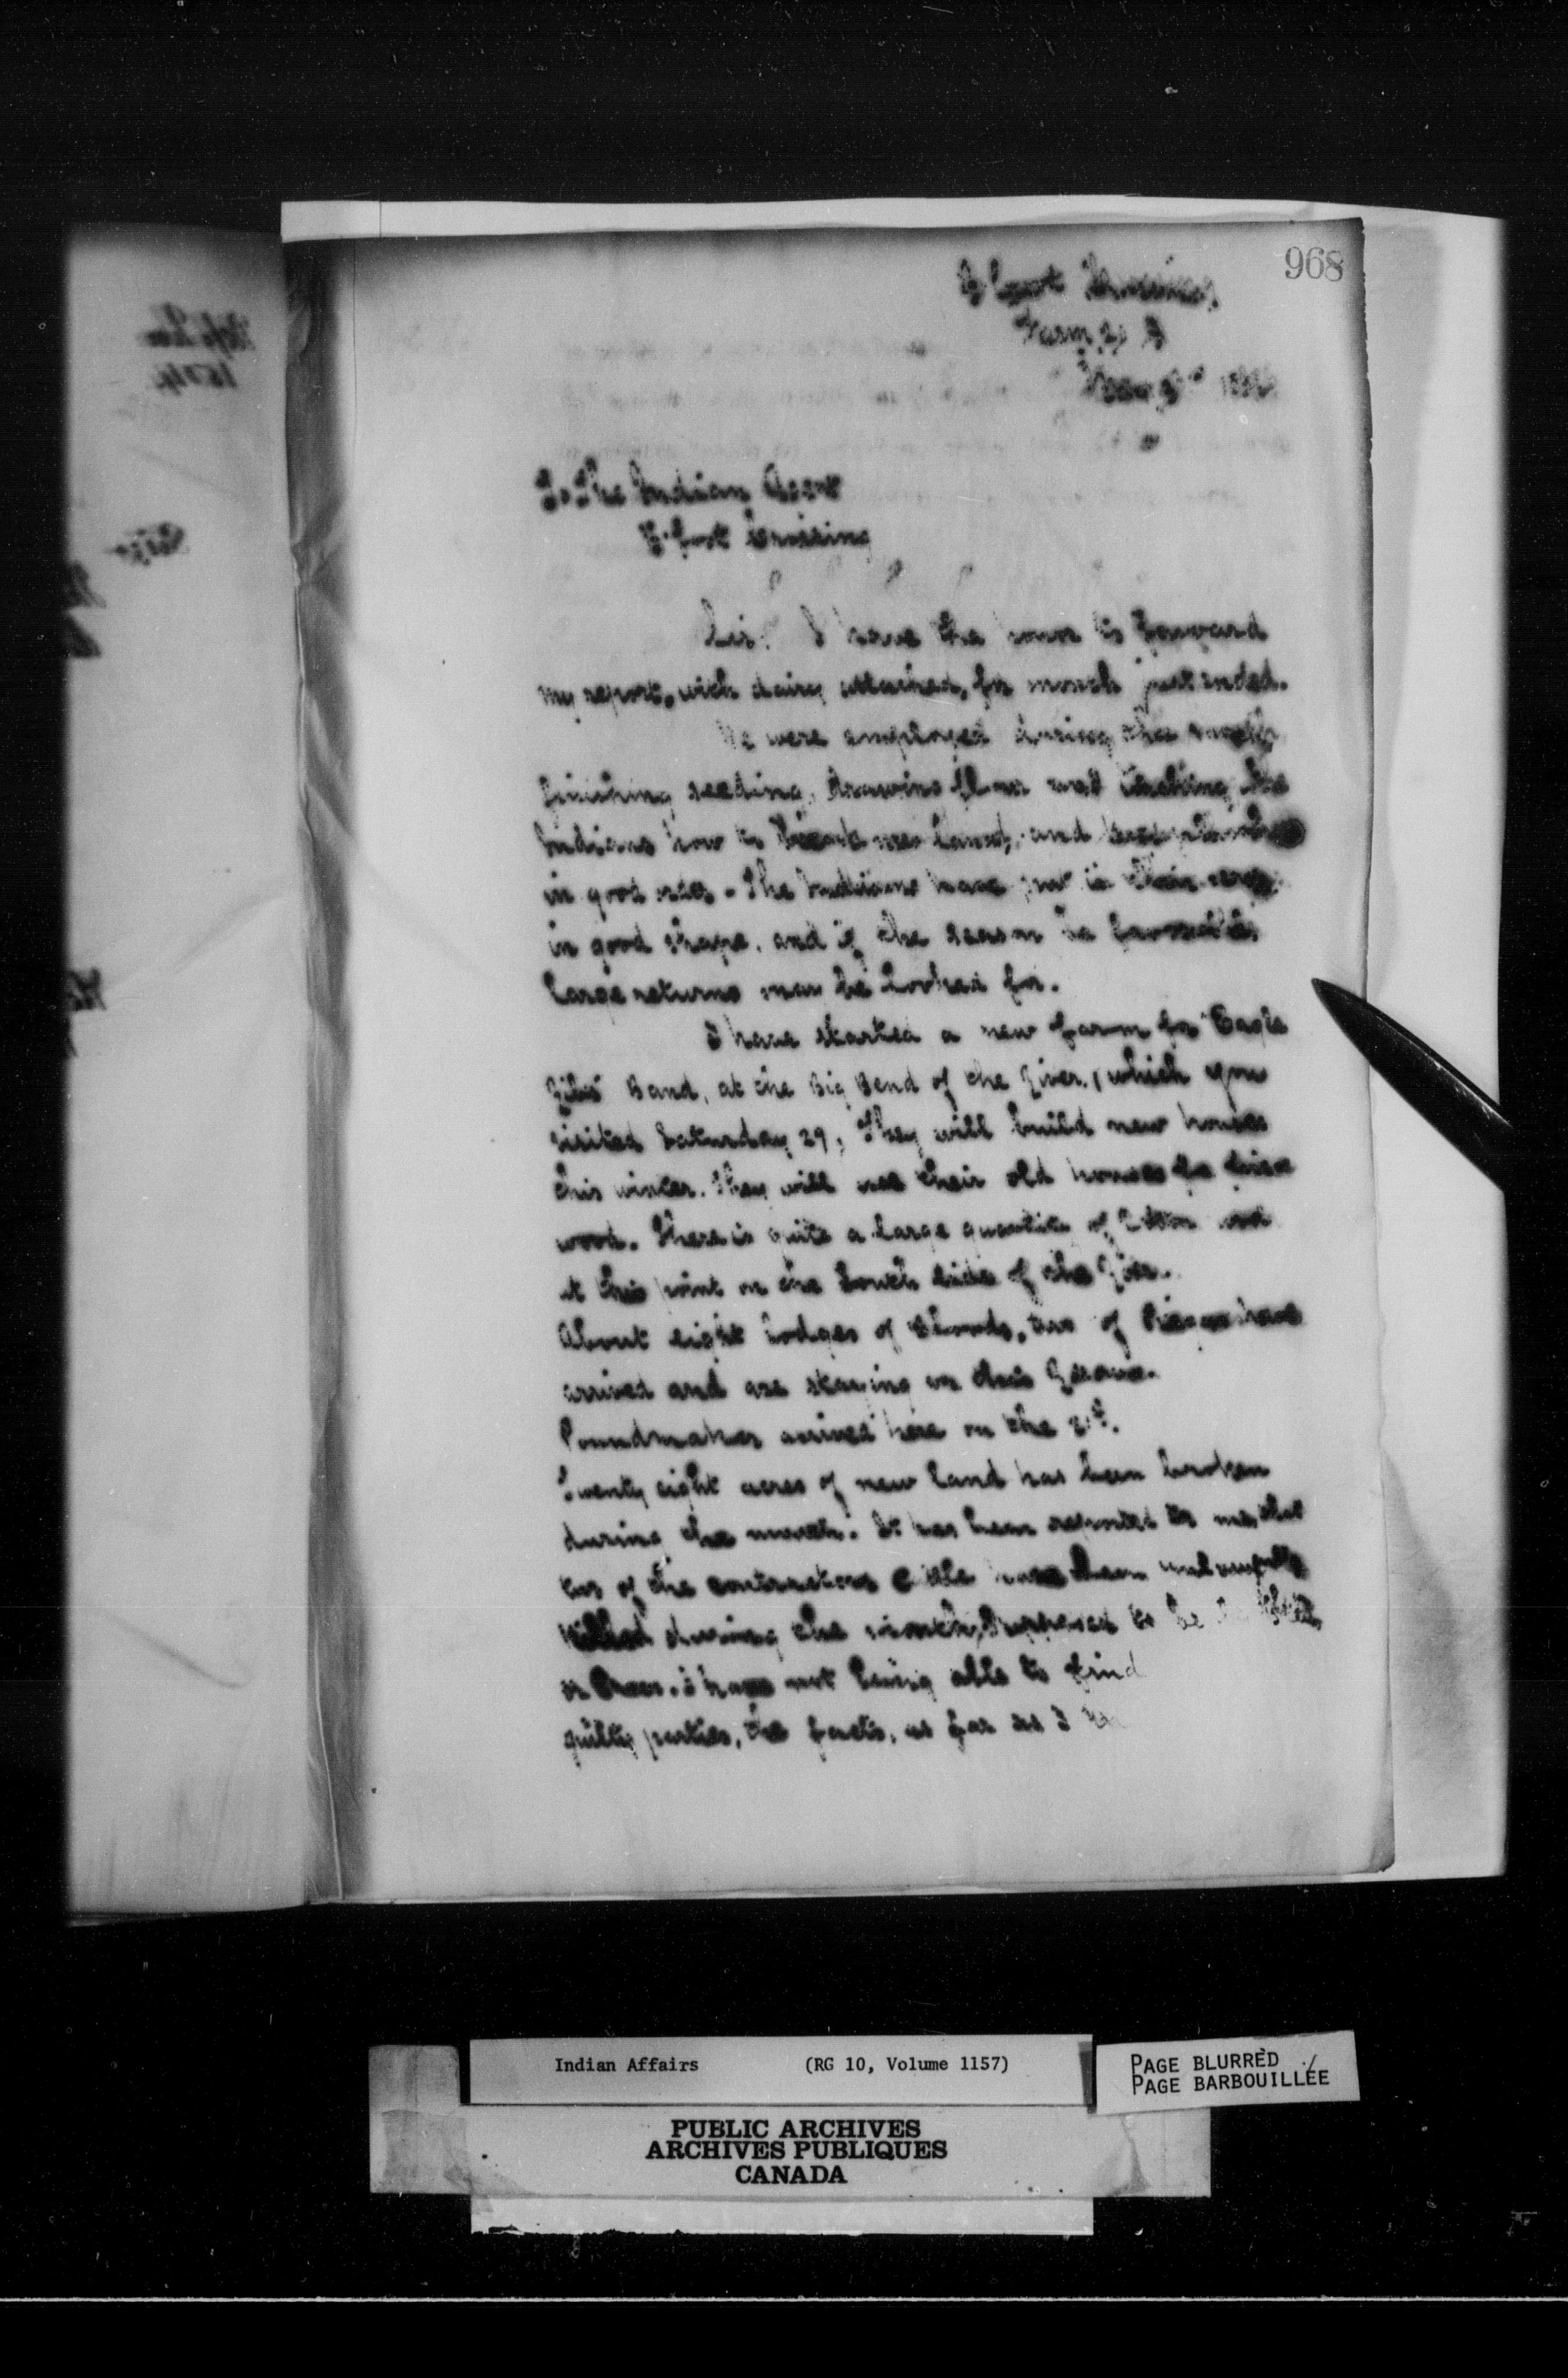 968
B. foot Crossing
Farm
To The Indian Agent
B. foot Crossing
Sir. I have the honor to forward
my report, with diary attached, for month just ended.
We were employed during the month
finishing seeding, drawing and teaching the
Indians how to break new land, and
in good . The Indians have put in their crops
in good shape, and if the season be favourable
large returns may be looked for.
I have started a new farm for Eagle
Ribs Band, at the Big Bend of the River, (which you
visited Saturday 29, They will build new houses
this winter. They will use their old houses for fire
wood. There is quite a large quantity of
at this point on the South side of the River.
About eight lodges of Bloods, two of have
arrived and are staying on this Reserve.
Poundmaker arrived here on the
Twenty eight acres of new land has been broken
during the month. It has been reported to me, that
two of the contractors Cattle have been unlawfully
killed during the month, Supposed to be
or Crees. I have not being able to find
guilty parties, the facts, as far as I
Indian Affairs (RG 10, Volume 1157)
PAGE BLURRED
PAGE BARBOUILLÉE
PUBLIC ARCHIVES
ARCHIVES PUBLIQUES
CANADA